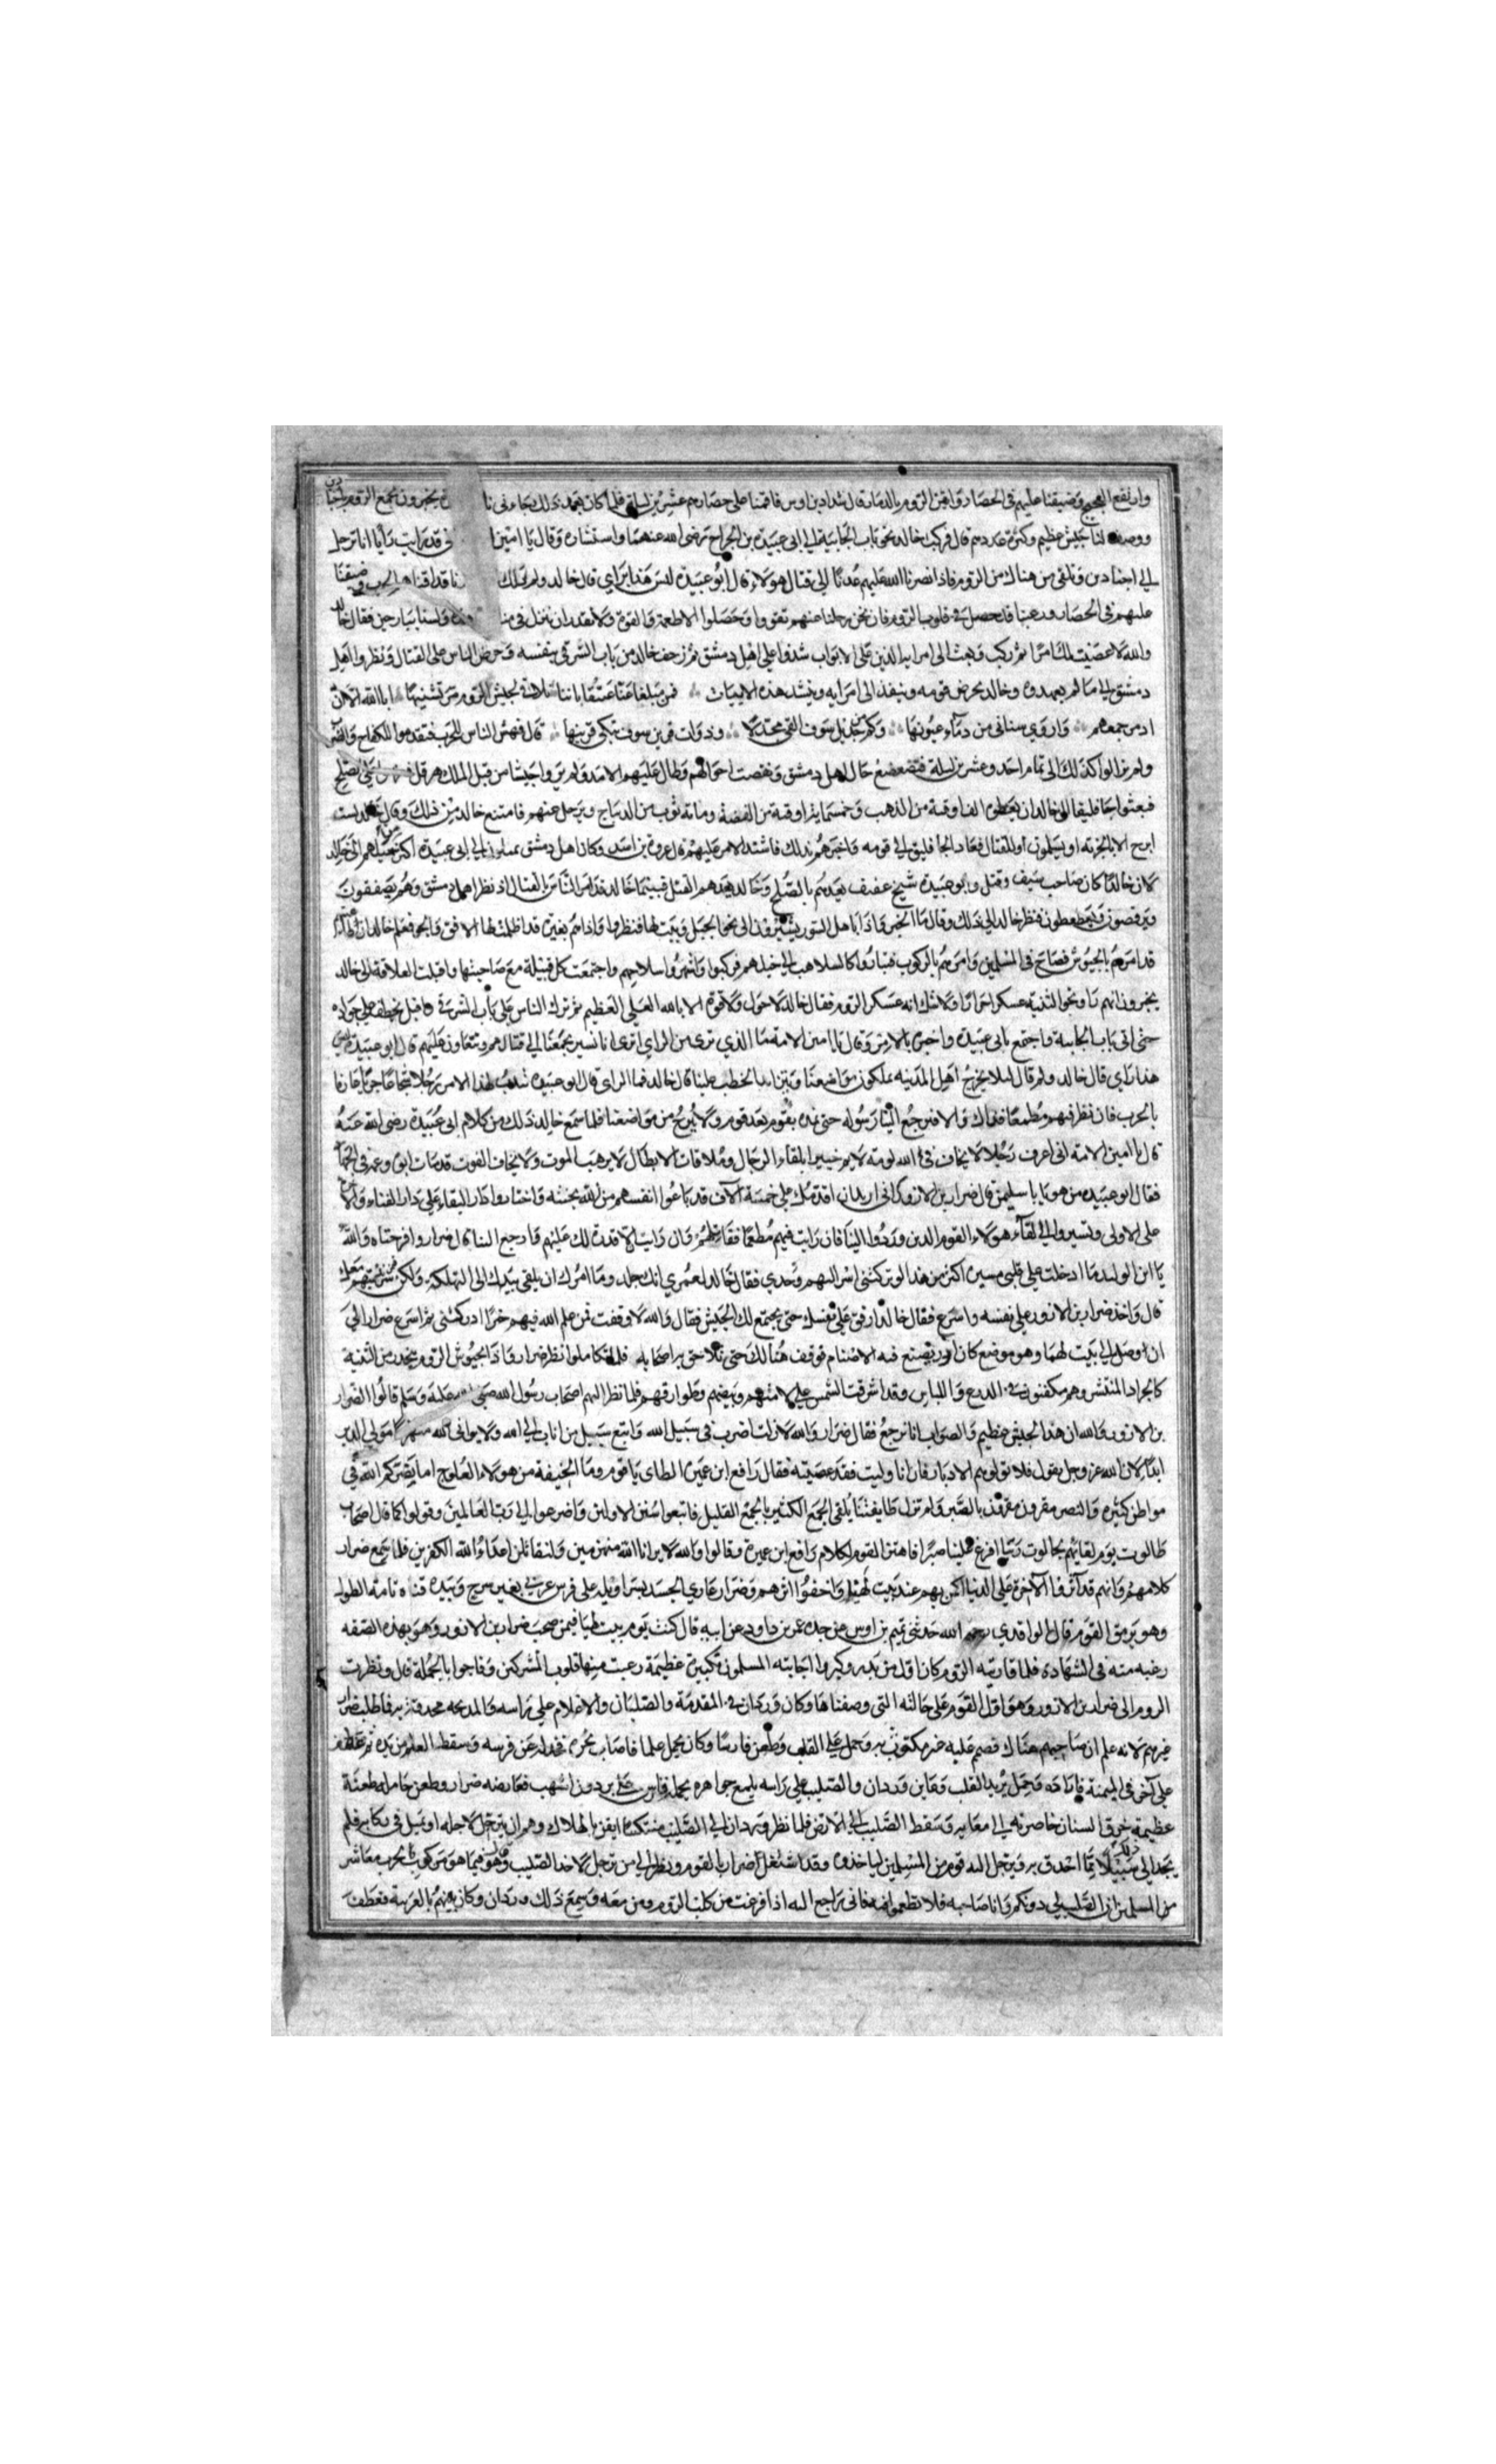 وارتفع العجيج وضيقنا عليهم في الحصار وايقن الروم بالدمار قال شداد بن اوس فاقمنا على حصارهم عشرين ليلة فلما كان بعد ذلك جاءني يخبرون بجمع الروم باجنادين
ووصف لنا جيش عظيم وكثرة عددهم قال فركب خالد نحو باب الجابية الى ابي عبيدة بن الجراح رضي الله عنهما واستشاره وقال يا امين اني قد رايت رايا انا نرحل
الي اجنادين فنلقى من هناك من الروم فاذا نصرنا الله عليهم عدنا الى قتال هولاء قال ابو عبيدة ليس هذا براي قال خالد ولم ذلك قد اذقناهم الحرب وضيقنا
عليهم في الحصار ورعبنا قد حصل في قلوب الروم فان نحن رحلنا عنهم تقووا وحصلوا الاطعمة والقوة ولا نقدر ان ننزل في ولسنا ببارحين فقال خالد
والله لا عصيت لك امرا ثم ركب وبعث الى امرايه الذين على الابواب شدوا على اهل دمشق ثم زحف خالد من باب الشرقي بنفسه وحرض الناس على القتال ونظروا اهل
دمشق الى ما لم يعهدوه وخالد يحرض قومه وينفذ الى امرايه وينشد هذه الابيات فمن مبلغا عنا عتيقا باننا نلاقي لجيش الروم ابا الله الا ان
ادمر جمعهم واروي سناني من دماء عيونها وكم من قتيل سوف القي مجندلا وذو لت قرين سوف تبكي قرينها قال فنهض الناس للحرب فتقدموا للكفاح
ولم يزالوا كذلك الى تمام احد وعشرين ليلة فتضعضع حال اهل دمشق ونغصت احوالهم وطال عليهم الامد ولم يروا جيشا من قبل الملك هرقل
فبعثوا جاثليقا الى خالد ان يعطوه الف اوقية من الذهب وخمسماية اوقية من الفضة وماته ثوب من الديباج ويرحل عنهم فامتنع خالد من ذلك وقال خالد لست
ابرح الا بالجزية او يسلمون او للقتال فعاد الجاثليق الى قومه واخبرهم بذلك فاشتد الامر عليهم قال عروة بن اسد وكان اهل دمشق يميلون الي ابي عبيدة اكثر من ميلهم الى خالد
لان خالدا كان صاحب سيف وقتل وابو عبيدة شيخ عفيف يعدهم بالصلح وخالد يعدهم القتل فبينما خالد قد امر الناس بالقتال اذ نظر اهل دمشق وهم يصفقون
ويرقصون ويعطعطون فنظر خالد الى ذلك وقال ما الخبر فاذا باهل السور يشيرون الى نحو الجبل وبيت لهيا فنظروا واذا هم بغبرة قد اظلمت لها الافق والجو فعلم خالد ان
قد امرهم بالجيوش فصاح في المسلمين وامرهم بالركوب فتبادروا كالسلاهب الي خيلهم فركبوا واشهروا سلاحهم واجتمعت كل قبيلة مع صاحبها واقبلت العلافة الى خالد
يخبرونه انهم راوا نحو الثنية عسكرا جرارا ولا شك انه عسكر الروم فقال خالد لا حول ولا قوة الا بالله العلي العظيم ثم ترك الناس على باب الشرقي واقبل يخطف على جواده
حتى اتى باب الجابية واجتمع بابي عبيدة واخبره بالامر وقال يا امين الامة ما الذي ترى من الراي اترى انا نسير بجمعنا الي قتالهم ونتعاون عليهم قال ابو عبيدة ليس
هذا براي قال خالد ولم قال ليلا يخرج اهل المدينة يملكون مواضعنا ويزداد الخطب علينا قال خالد فما الراي قال ابو عبيدة تندب لهذا الامر رجلا شجاعا جريا عارفا
بالحرب فان نظر فيهم مطمعا فذاك والا فيرجع الينا رسوله حتى نمده بقوم بعد قوم ولا نبرح من مواضعنا فلما سمع خالد ذلك من كلام ابي عبيدة رضي الله عنه
قال يا امين الامة اني اعرف رجلا لا يخاف في الله لومة لايم خبيرا بلقاء الرجال وملاقات الابطال لا يرهب الموت ولا يخاف الفوت قد مات ابوه وعمه في
فقال ابو عبيده من هو يا ابا سليمن قال ضرار بن الازور اني اريد ان اقدمك على خمسة الاف قد باعوا انفسهم من الله بجنته واختاروا دار البقاء على دار الفناء
على الاولى وتسير والي لقاء هولاء القوم الذين وردوا الينا فان رايت فيهم مطمعا فقاتلهم وان رايت لا قدرة لك عليهم فارجع الينا قال ضرار وا فرحتاه والله
يا ابن الوليد ما ادخلت على قلبي مسرة اكثر من هذا لو تركتني اسر اليهم وحدي فقال خالد لعمري انك جلد وما امرك ان تلقي بيدك الى التهلكة ولكن سر بمن معك
قال واخذ ضرار بن الازور على نفسه واسرع فقال خالد ارفق على نفسك حتى يجتمع لك الجيش فقال والله لا وقفت فمن علم الله فيهم خيرا ادركني ثم اسرع ضرار الي
ان اوصل الى بيت لهيا وهو موضع كان ازر يصنع فيه الاصنام فوقف هنالك حتى تلاحق به اصحابه فلما تكاملوا نظر ضرار واذا بجيوش الروم تنحدر من الثنية
كالجراد المنتشر وهم مكفنون في الدرع واللباس وقد اشرقت الشمس على لامتهم وبيضهم وطوارقهم فلما نظر اليهم اصحاب رسول الله صلى عليه وسلم قالوا لضرار
بن الازور والله ان هذا الجيش عظيم والصواب انا نرجع فقال ضرار والله لا زلت اضرب في سبيل الله واتبع سبيل من اناب الي الله ولا يراني الله منهزما مولي الدبر
ابدا لان الله عز وجل يقول فلا تولوهم الادبار فان انا وليت فقد عصيته فقال رافع ابن عميرة الطاي يا قوم وما الخيفة من هولاء العلوج اما ينصركم الله في
مواطن كثيرة والنصر مقرون مقرون بالصبر ولم تزل طايفتنا تلقى الجمع الكثير بالجمع القليل فاتبعوا سنن الاولين واضرعوا الى رب العالمين وقولوا كما قال اصحاب
طالوت يوم لقايهم بجالوت ربنا افرغ علينا صبرا فاهتز القوم لكلام رافع ابن عميرة وقالوا والله لا يرانا الله منهزمين ولنقاتلن اعداء الله الكفرين فلما سمع ضرار
كلامهم وانهم قد آثروا الآخرة على الدنيا اكمن بهم عند بيت لهيا واخفوا اثرهم وضرار عاري الجسد بسراويله على فرس عربي بغير سرج وبيده قناه تامة الطول
وهو يرمق القوم قال الواقدي رحمه الله حدثني تميم بن اوس عن جده عمر بن داود عن ابيه قال كنت يوم بيت لهيا فيمن صحب ضرار بن الازور وهو بهذه الصفة
رغبه منه في الشهادة فلما قاربته الروم كان اول من بدر وكبر اجابته المسلمون بتكبيرة عظيمة رعبت منها قلوب المشركين وفاجوا بالحملة قال ونظرت
الروم الى ضرار بن الازور وهو اول القوم على حالته التي وصفناها وكان وردان في المقدمة والصلبان والاعلام على راسه محدقة به فاطلب ضرار
غيرهم لانه علم ان صاحبهم هناك فصمم عليه غير مكترث به وحمل على القلب وطعن فارسا وكان يحمل علما فاصاب نحره فجندله عن فرسه وسقط العلم من يده ثم عطف
على آخر في الميمنة فارداه وحمل يريد القلب وعاين وردان والصليب على راسه يلمع جواهره يحمله فارس على برذون اشهب فعارضه ضرار وطعن حامله طعنة
عظيمة خرق السنان خاصرته الى معايه وسقط الصليب الي الارض فلما نظر وردان الي الصليب منتكسا ايقن بالهلاك وهم ان يترجل لاجله او يميل في ركابه فلم
يجد الى ذلك سبيلا مما احدق به وترجل اليه قوم من المسلمين لياخذوه وقد اشتغل ضرار بالقوم ونظر الى من ترجل لاخذ الصليب وقال وهو فيما هو من كرب الحرب معاشر
من المسلمين ان الصليب لي دونكم وانا صاحبه فلا تطمعوا فيه فاني راجع اليه اذا فرغت من كلب الروم ومن معه وسمع ذلك وردان وكان يفهم بالعربية فعطف